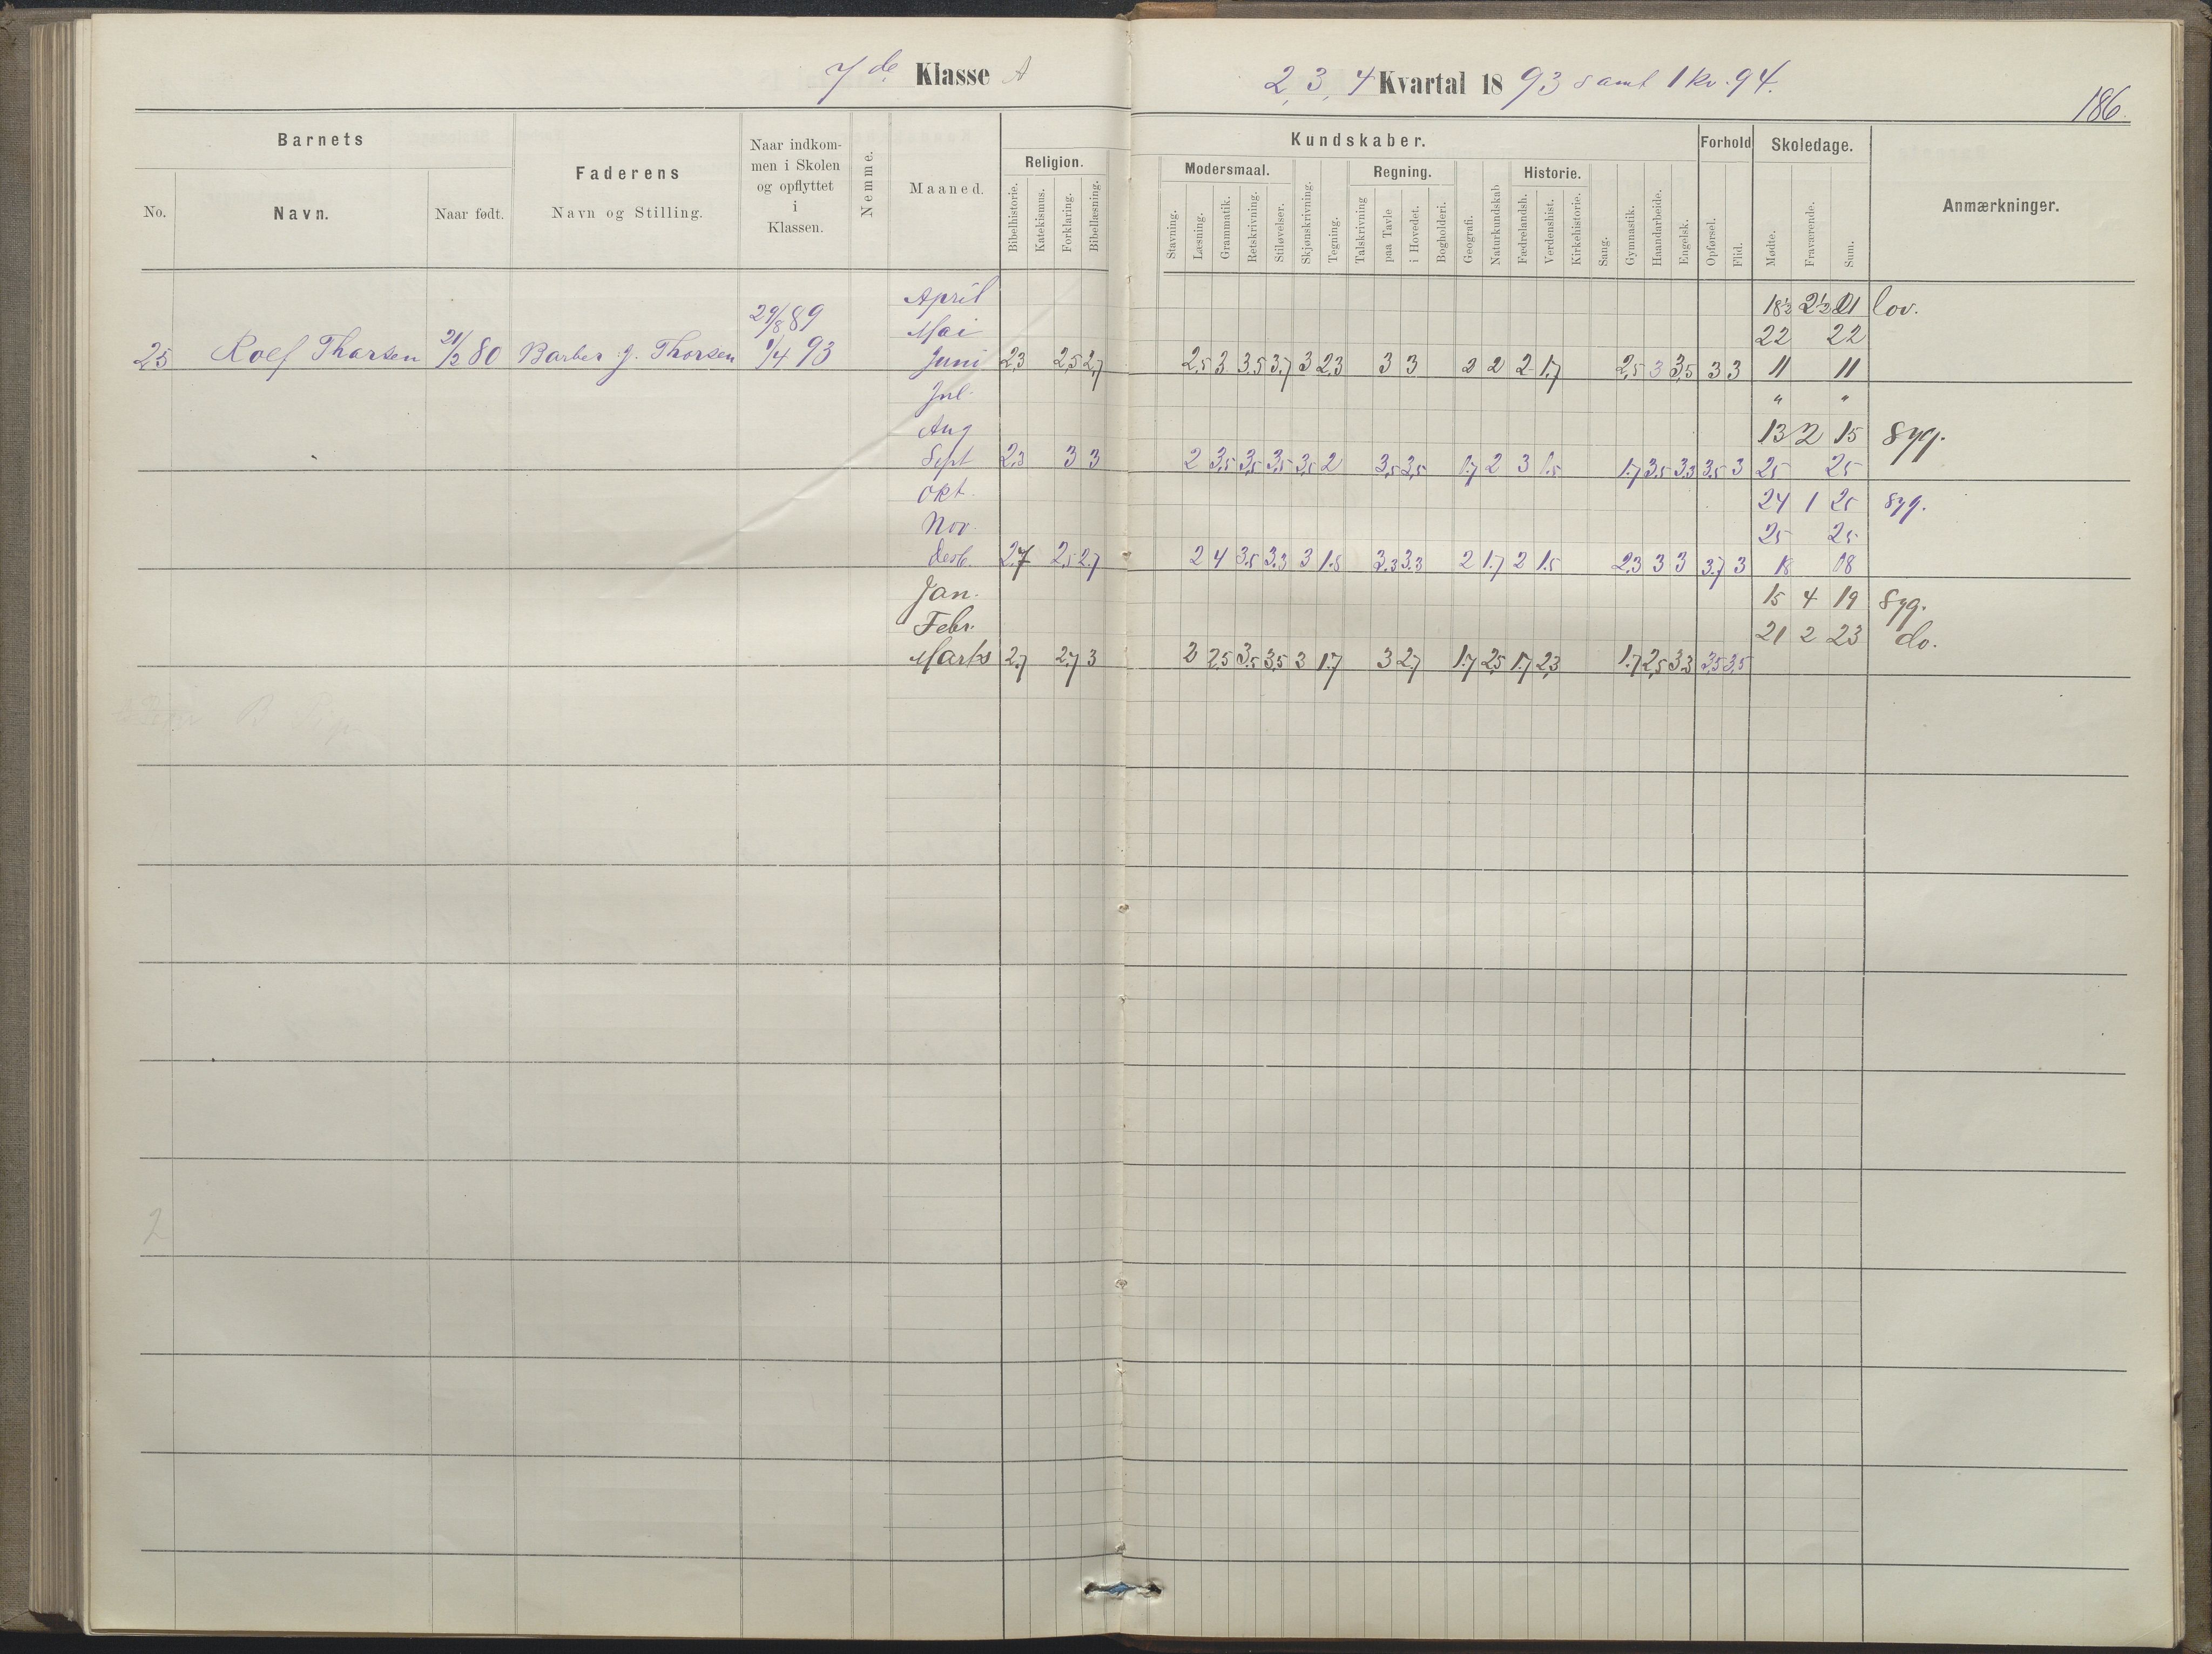 7de Klasse A
2, 3, 4 Kvartal 1893 samt 1 kv. 94.
186.
Barnets
No.
Navn.
Naar født.
Faderens
Navn og Stilling.
Naar indkom-
men i Skolen
og opflyttet
i
Klassen.
Nemme.
Maaned.
Religion.
Bibelhistorie.
Katekismus.
Forklaring.
Bibellæsning.
Kundskaber.
Modersmaal.
Stavning.
Læsning.
Grammatik.
Retskrivning.
Stiløvelser.
Skjønskrivning.
Tegning.
Regning.
Talskrivning
paa Tavle
i Hovedet.
Bogholderi.
Geografi.
Naturkundskab
Historie.
Fædrelandsh.
Verdenshist.
Kirkehistorie.
Sang.
Gymnastik.
Haandarbeide.
Engelsk.
Forhold
Opførsel.
Flid.
Skoledage.
Mødte.
Fraværende.
Sum.
Anmærkninger.
April 18½ 2½ 21 lov.
29/8 89 Mai 22 22
25 Rolf Thorsen 21/2 80 Barber J. Thorsen 1/4 93 Juni 2,3 2,5 2,7 2,5 3 3,5 3,7 3 2,3 3 3 2 2 2 1,7 2,5 3 3,5 3 3 11 11
Jul. " "
Aug 13 2 15 syg.
Sept 2,3 3 3 2 3,5 3,5 3,5 3,5 2 3,5 3,5 1,7 2 3 1,5 1,7 3,5 3,3 3,5 3 25 25
Okt. 24 1 25 syg.
Nov. 25 25
Desb. 2,7 2,5 2,7 2 4 3,5 3,3 3 1,5 3,3 3,3 2 1,7 2 1,5 2,3 3 3 3,7 3 18 18
Jan. 15 4 19 syg.
Febr. 21 2 23 do.
Marts 2,7 2,7 3 2 2,5 3,5 3,5 3 1,7 3 2,7 1,7 2,5 1,7 2,3 1,7 2,5 3,3 3,5 3,5
2